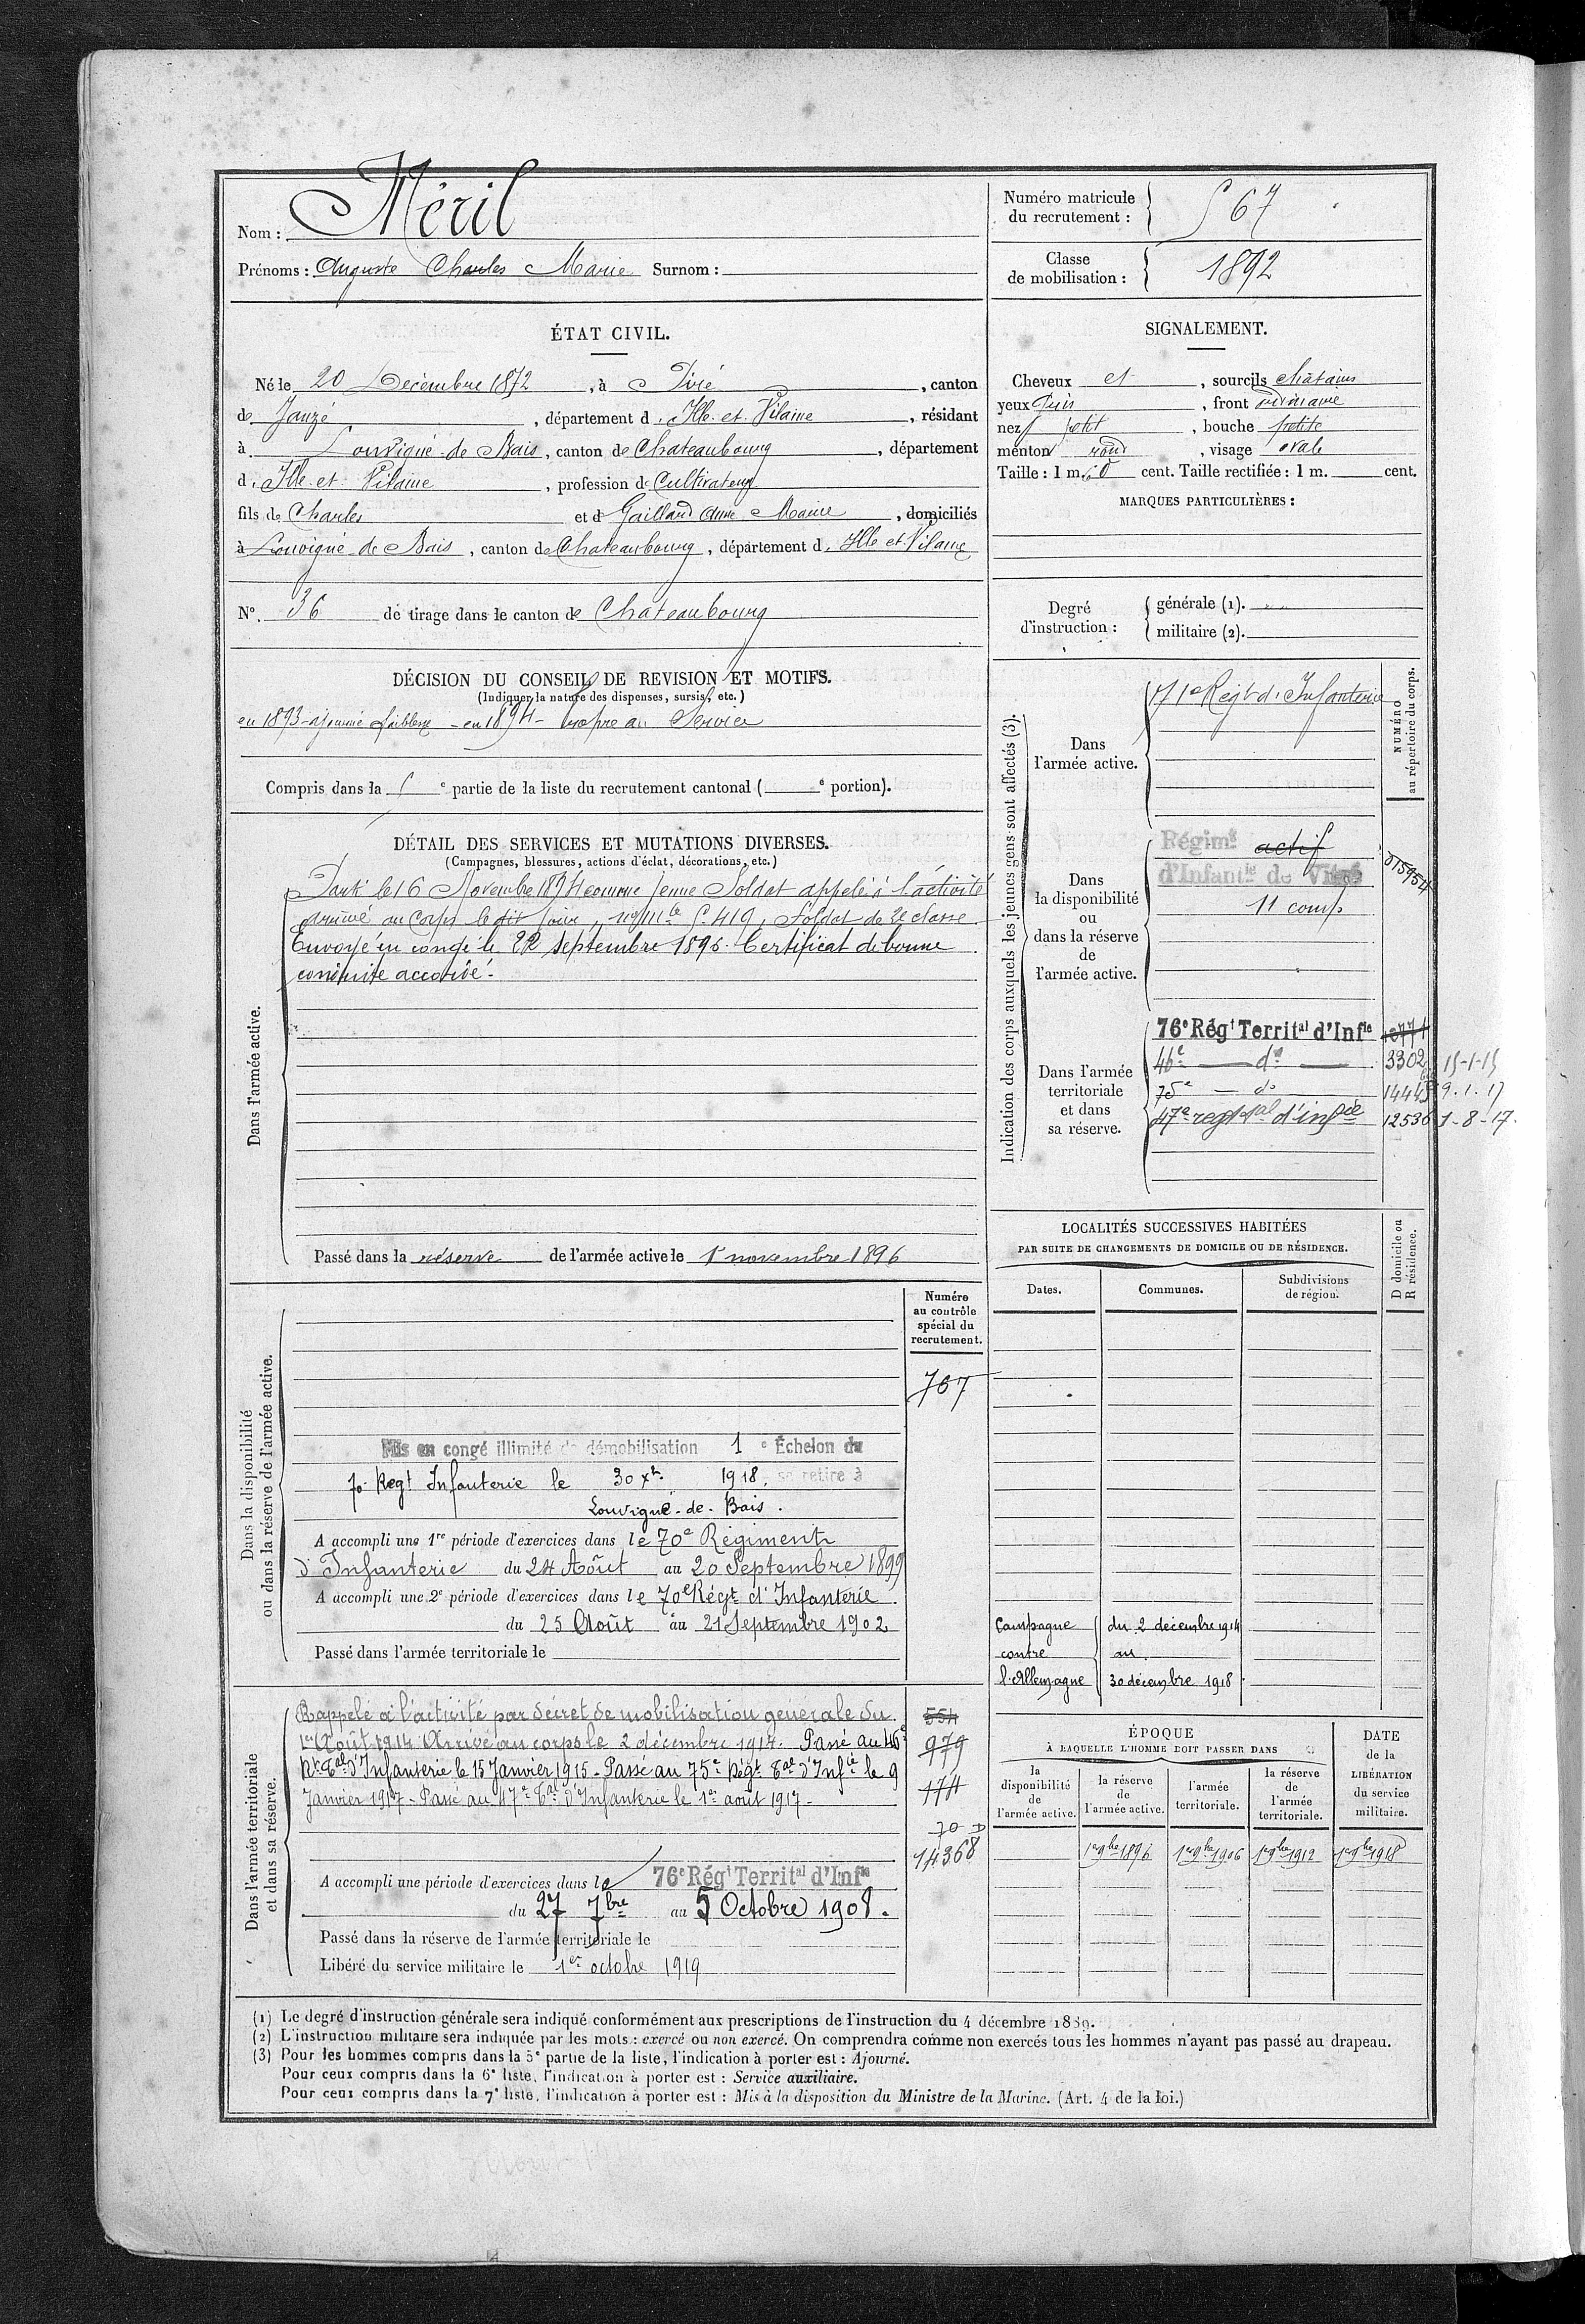 Nom : Méril
Prénoms : Auguste Charles Marie Surnom :
Numéro matricule du recrutement : 567
Classe de mobilisation : 1892
ÉTAT CIVIL.
Né le 20 Décembre 1872, à Piré, canton
de Janzé, département d'Ille-et-Vilaine, résidant
à Louvigné-de-Bais, canton de Chateaubourg, département
d'Ille-et-Vilaine, profession de Cultivateur
fils de Charles et de Gaillard Anne Marie, domiciliés
à Louvigné-de-Bais, canton de Chateaubourg, département d'Ille et Vilaine
N°. 36 de tirage dans le canton de Chateaubourg
SIGNALEMENT.
Cheveux et, sourcils chatains
yeux gris, front ordinaire
nez petit, bouche petite
menton rond, visage ovale
Taille : 1 m. 60 cent. Taille rectifiée : 1 m. cent.
MARQUES PARTICULIÈRES :
Degré d'instruction :
générale (1).
militaire (2).
DÉCISION DU CONSEIL DE REVISION ET MOTIFS.
(Indiquer la nature des dispenses, sursis, etc.)
en 1893 - ajourné faiblesse - en 1894 - propre au Service
Compris dans la 1e partie de la liste du recrutement cantonal ( e portion).
DÉTAIL DES SERVICES ET MUTATIONS DIVERSES.
(Campagnes, blessures, actions d'éclat, décorations, etc.)
Dans l'armée active.
Parti le 16 Novembre 1894 comme jeune Soldat appelé à l'activité
arrivé au Corps le dit jour, no mle 5.419, Soldat de 2e classe
Envoyé en congé le 22 septembre 1896. Certificat de bonne
conduite accordé.
Passé dans la réserve de l'armée active le 1r novembre 1896
Indication des corps auxquels les jeunes gens sont affectés (3).
NUMÉRO au répertoire du corps.
Dans l'armée active.
71e Régt d'Infanterie
Dans la disponibilité ou dans la réserve de l'armée active.
Régimt actif
d'Infantie de Vitré
11 comp
015954
Dans l'armée territoriale et dans sa réserve.
76e Régt Territal d'Infie
46e — do — 3302 15-1-15
75e — do 14445 9.1.17
47e regt tal d'infie 12536 1-8-17.
LOCALITÉS SUCCESSIVES HABITÉES
PAR SUITE DE CHANGEMENTS DE DOMICILE OU DE RÉSIDENCE.
Dates.
Communes.
Subdivisions de région.
D domicile ou R résidence.
Campagne du 2 décembre 1914
contre au
l'Allemagne 30 décembre 1918
Dans la disponibilité ou dans la réserve de l'armée active.
Numéro au contrôle spécial du recrutement.
767
Mis en congé illimité de démobilisation 1e Échelon du
70e Regt Infanterie le 30 xbre 1918. se retire à
Louvigné-de-Bais.
A accompli une 1re période d'exercices dans le 70e Régiment
d'Infanterie du 24 Août au 20 Septembre 1899
A accompli une 2e période d'exercices dans le 70e Régt d'Infanterie
du 25 Août au 21 Septembre 1902
Passé dans l'armée territoriale le
Dans l'armée territoriale et dans sa réserve.
Rappelé à l'activité par décret de mobilisation générale du
1er Août 1914 Arrivé au corps le 2 décembre 1914. Passé au 46e
Rt Tal d'Infanterie le 15 Janvier 1915 - Passé au 75e Régt Tal d'Infie le 9
Janvier 1917 - Passé au 47e Tal d'Infanterie le 1er août 1917 -
554
979
174
14368
A accompli une période d'exercices dans le 76e Régt Territal d'Infie
du 27 7bre au 5 Octobre 1908.
Passé dans la réserve de l'armée territoriale le
Libéré du service militaire le 1er octobre 1919
ÉPOQUE
À LAQUELLE L'HOMME DOIT PASSER DANS
la disponibilité de l'armée active.
la réserve de l'armée active.
l'armée territoriale.
la réserve de l'armée territoriale.
DATE de la LIBÉRATION du service militaire.
1er 9bre 1896
1er 9bre 1906
1er 9bre 1912
1er 9bre 1918
(1) Le degré d'instruction générale sera indiqué conformément aux prescriptions de l'instruction du 4 décembre 1889.
(2) L'instruction militaire sera indiquée par les mots : exercé ou non exercé. On comprendra comme non exercés tous les hommes n'ayant pas passé au drapeau.
(3) Pour les hommes compris dans la 5e partie de la liste, l'indication à porter est : Ajourné.
Pour ceux compris dans la 6e liste, l'indication à porter est : Service auxiliaire.
Pour ceux compris dans la 7e liste, l'indication à porter est : Mis à la disposition du Ministre de la Marine. (Art. 4 de la loi.)